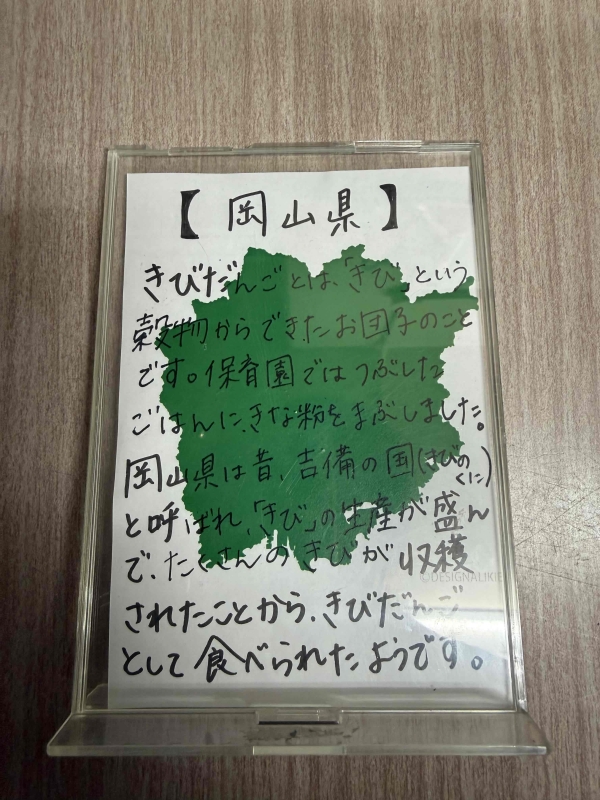 【岡山県】
きびだんごとは、「きび」という
穀物からできたお団子のこと
です。保育園ではつぶした
ごはんに、きな粉をまぶしました。
岡山県は昔、吉備の国(きびのくに)
と呼ばれ、「きび」の生産が盛ん
で、たくさんのきびが収穫
されたことから、きびだんご
として食べられたようです。
©DESIGNALIKIE